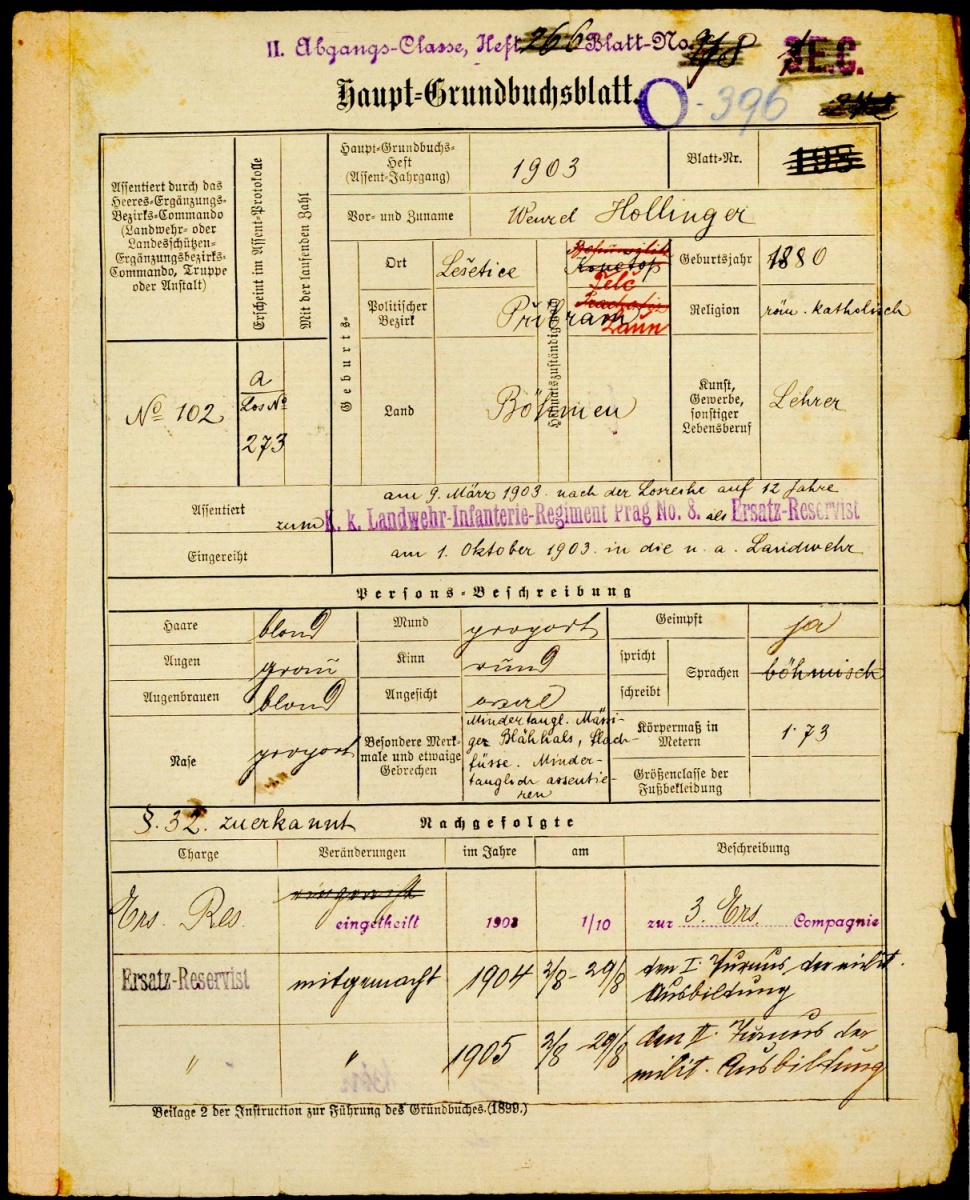 II. Abgangs-Classe, Heft 266 Blatt-No.
Haupt-Grundbuchsblatt.
O - 396
Assentiert durch das
Heeres-Ergänzungs-
Bezirks-Commando
(Landwehr- oder
Landesschützen-
Ergänzungsbezirks-
Commando, Truppe
oder Anstalt)
Erscheint im Assent-Protokolle
Mit der laufenden Zahl
Haupt-Grundbuchs-
Heft
(Assent-Jahrgang)
1903
Blatt-Nr.
195
Vor- und Zuname
Wenzel Hollinger
Geburts-
Ort
Lešetice
Heimatszuständigkeits
Kopetop
Telč
Geburtsjahr
1880
Politischer
Bezirk
Přibram
Laun
Religion
röm. katholisch
Land
Böhmen
Kunst,
Gewerbe,
sonstiger
Lebensberuf
Lehrer
No 102
a
Los No
273
Assentiert
am 9. März 1903. nach der Losreihe auf 12 Jahre
zum K. k. Landwehr-Infanterie-Regiment Prag No. 8. als Ersatz-Reservist
Eingereiht
am 1. Oktober 1903. in die n. a. Landwehr
Persons-Beschreibung
Haare
blond
Mund
proport
Geimpft
ja
Augen
grau
Kinn
rund
spricht
schreibt
Sprachen
böhmisch
Augenbrauen
blond
Angesicht
oval
Nase
proport
Besondere Merk-
male und etwaige
Gebrechen
Mindertaugl. Mässi-
ger Blähhals, Flach-
füsse. Minder-
tauglich assentie-
ren
Körpermaß in
Metern
1.73
Größenclasse der
Fußbekleidung
§. 32. zuerkannt
Nachgefolgte
Charge
Veränderungen
im Jahre
am
Beschreibung
Ers. Res.
eingereiht
eingetheilt
1903
1/10
zur 3. Ers. Compagnie
Ersatz-Reservist
mitgemacht
1904
2/8 - 29/8
den I. Turnus der milit.
Ausbildung
"
"
1905
2/8 - 29/8
den II. Turnus der
milit. Ausbildung
Beilage 2 der Instruction zur Führung des Grundbuches. (1899.)